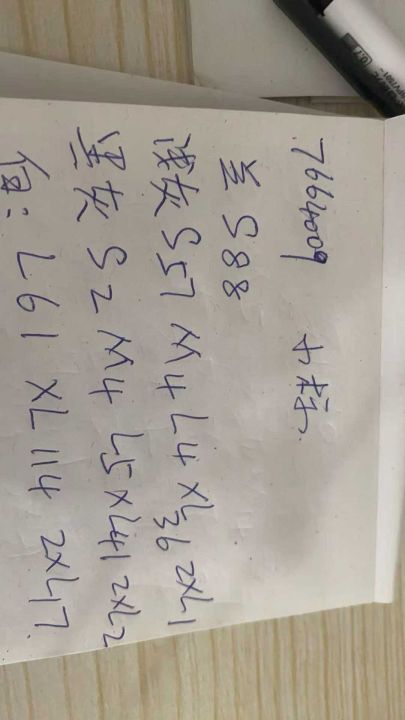 7664009 卡其
兰 S88
浅灰 S57 M4 L4 XL36 2XL1
黑灰 S2 M4 L5 XL41 2XL2
白: L61 XL114 2XL17